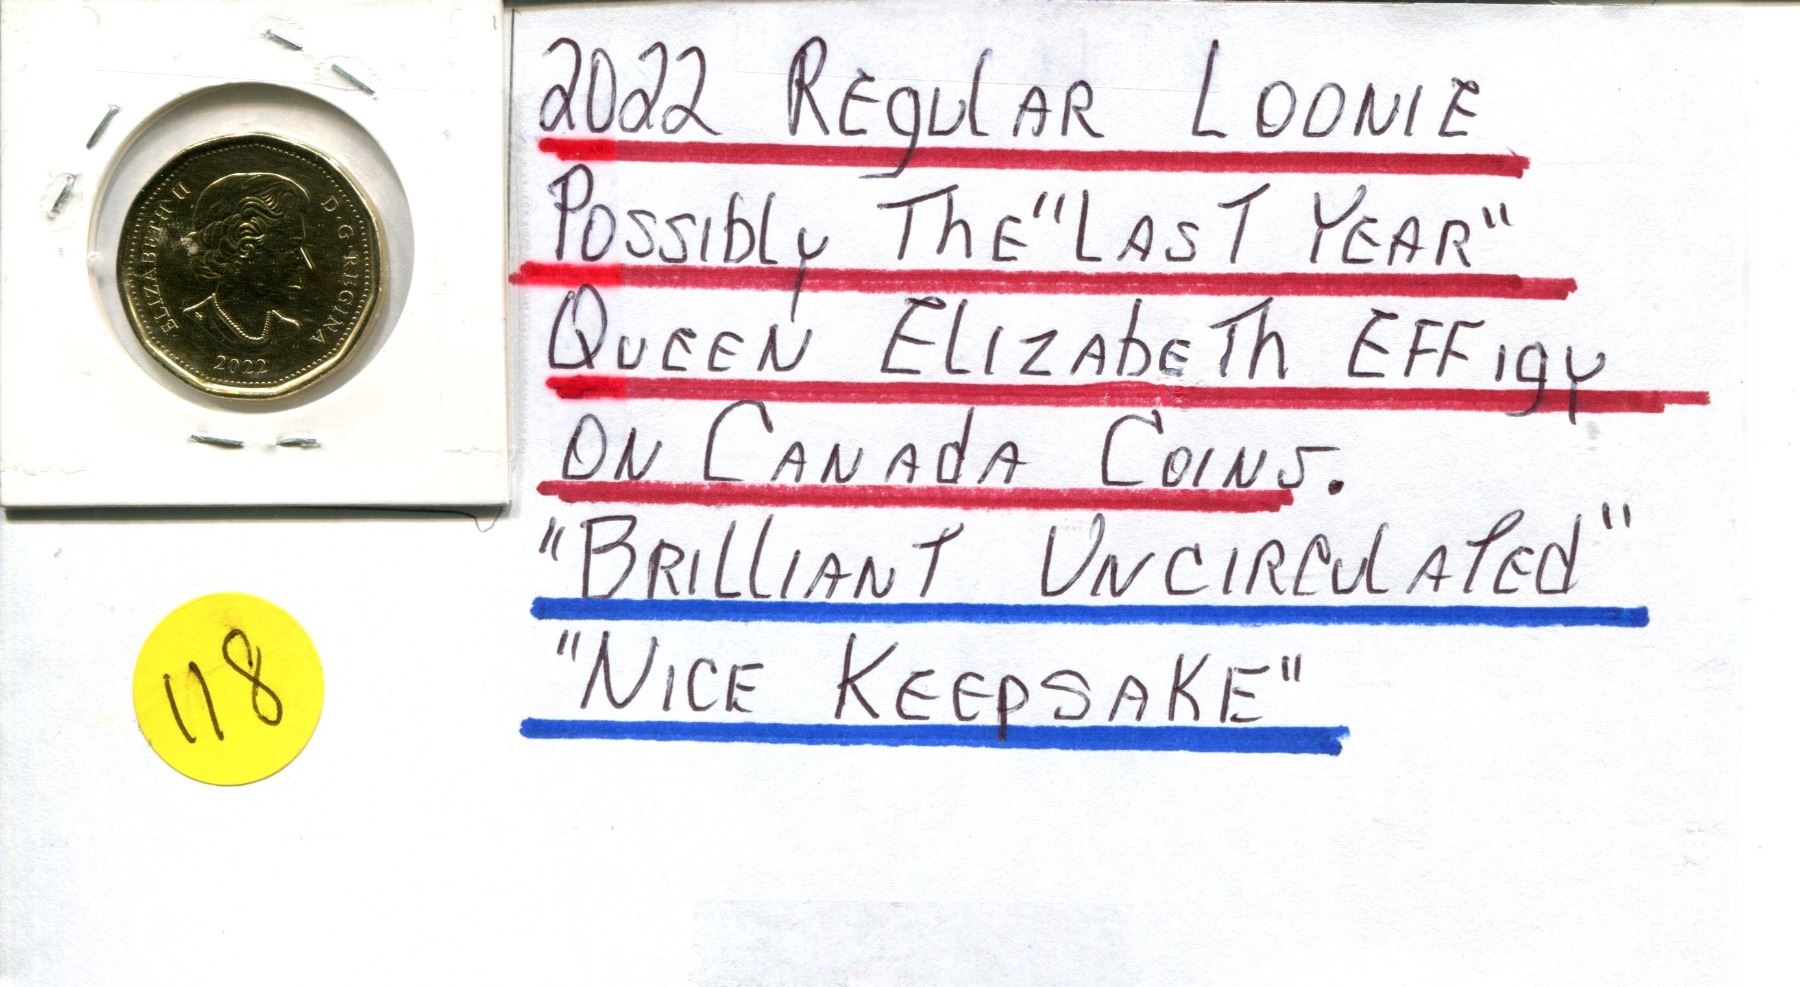 ELIZABETH II D·G·REGINA
2022
118
2022 REgULAR LOONIE
POSSIblY ThE "LAST YEAR"
QUEEN ELIZAbETh EFFIgY
ON CANAdA COINS.
"BRILLIANT UNCIRCULATEd"
"NICE KEEpSAKE"